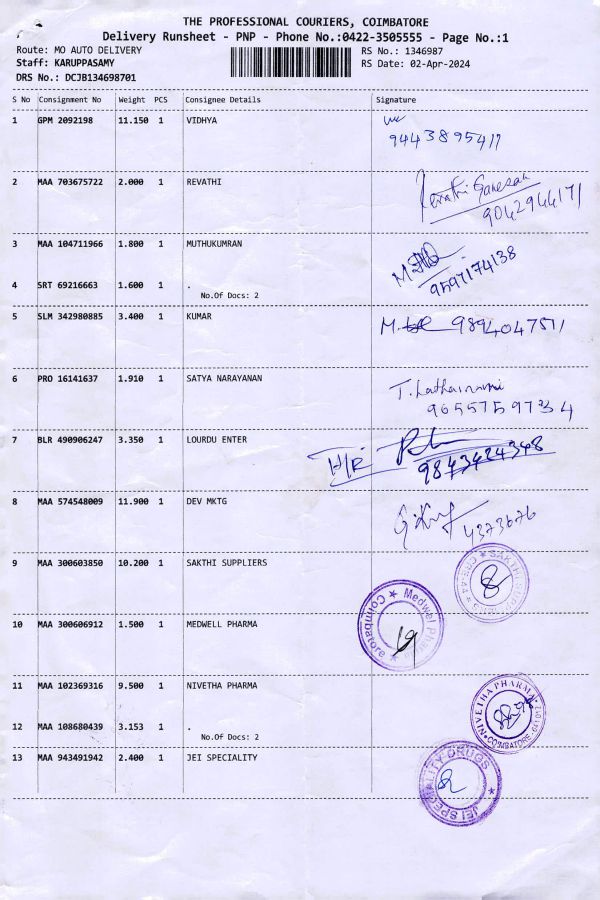 THE PROFESSIONAL COURIERS, COIMBATORE
Delivery Runsheet - PNP - Phone No.:0422-3505555 - Page No.:1
Route: MO AUTO DELIVERY RS No.: 1346987
Staff: KARUPPASAMY RS Date: 02-Apr-2024
DRS No.: DCJB134698701
S No Consignment No Weight PCS Consignee Details Signature
1 GPM 2092198 11.150 1 VIDHYA
9443895417
2 MAA 703675722 2.000 1 REVATHI
Revathi Ganesan
9042944171
3 MAA 104711966 1.800 1 MUTHUKUMRAN
9597174138
4 SRT 69216663 1.600 1 .
No.Of Docs: 2
5 SLM 342980885 3.400 1 KUMAR
9894047511
6 PRO 16141637 1.910 1 SATYA NARAYANAN
9655759734
7 BLR 490906247 3.350 1 LOURDU ENTER
9843424348
8 MAA 574548009 11.900 1 DEV MKTG
4373676
9 MAA 300603850 10.200 1 SAKTHI SUPPLIERS
SAKTHI
10 MAA 300606912 1.500 1 MEDWELL PHARMA
Medwel Pharma
Coimbatore
11 MAA 102369316 9.500 1 NIVETHA PHARMA
NIVETHA PHARMA
COIMBATORE
12 MAA 108680439 3.153 1 .
No.Of Docs: 2
13 MAA 943491942 2.400 1 JEI SPECIALITY
JEI SPECIALITY DRUGS